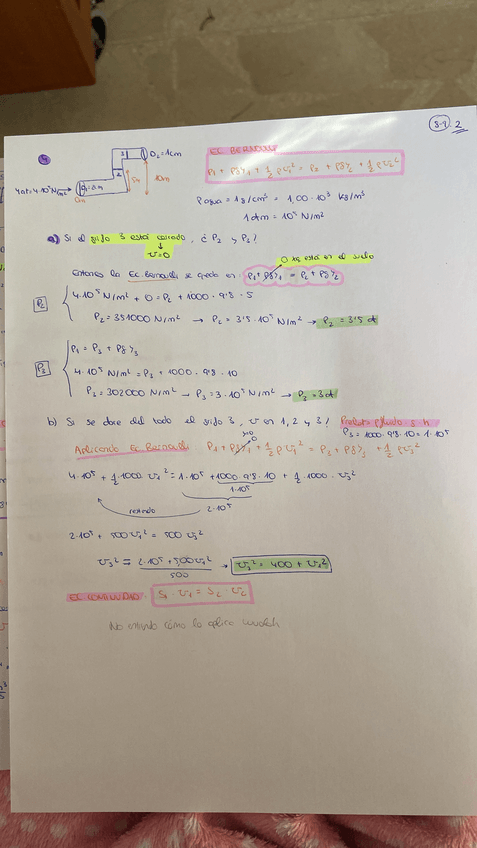 3-1.2
4
4at=4·10⁵N/m²
D₁=2cm
D₂=1cm
3
2
5m
10m
0m
EC BERNOULLI
P₁ + ρgy₁ + 1/2 ρv₁² = P₂ + ρgy₂ + 1/2 ρv₂²
ρagua = 1g/cm³ = 1,00·10³ kg/m³
1atm = 10⁵ N/m²
a) Si el grifo 3 está cerrado, ¿ P₂ y P₃?
v=0
0 xq está en el suelo
Entonces la Ec Bernoulli se queda en: P₁+ρgy₁ = P₂+ρgy₂
P₂
4·10⁵ N/m² + 0 = P₂ + 1000·9'8·5
P₂ = 351000 N/m² → P₂ = 3'5·10⁵ N/m² → P₂ = 3'5 at
P₃
P₁ = P₃ + ρgy₃
4·10⁵ N/m² = P₃ + 1000·9'8·10
P₃ = 302000 N/m² → P₃ = 3·10⁵ N/m² → P₃ = 3at
b) Si se abre del todo el grifo 3, v en 1, 2 y 3?
P₃ = 1000·9'8·10 = 1·10⁵
Aplicando Ec Bernoulli
P₁ + ρgy₁ + 1/2 ρv₁² = P₃ + ρgy₃ + 1/2 ρv₃²
y=0
0
4·10⁵ + 1/2·1000·v₁² = 1·10⁵ + 1000·9'8·10 + 1/2·1000·v₃²
1·10⁵
restando
2·10⁵
2·10⁵ + 500v₁² = 500v₃²
v₃² = 2·10⁵ + 500v₁² / 500 → v₃² = 400 + v₁²
EC CONTINUIDAD
S₁·v₁ = S₂·v₂
No entiendo cómo la aplico